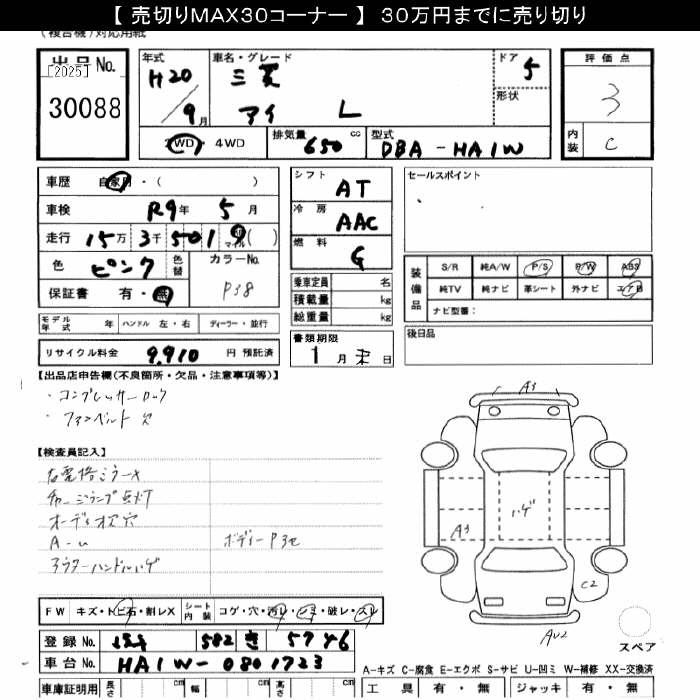 【 売切りMAX30コーナー 】 30万円までに売り切り
(複合機)対応用紙
出品No. [2025] 30088
年式 H20 / 9月
車名・グレード 三菱 アイ L
ドア 5
形状
評価点 3
内装 C
2WD・4WD
排気量 650 cc
型式 DBA-HA1W
車歴 自家用・( )
車検 R9年 5月
走行 15万 3千 5019 マイル( )
色 ピンク 色替 カラーNo. P38
保証書 有・無
シフト AT
冷房 AAC
燃料 G
セールスポイント
装備品 S/R 純A/W P/S P/W ABS
純TV 純ナビ 革シート 外ナビ エアB
ナビ型番:
乗車定員 名
積載量 kg
総重量 kg
モデル年式 年 ハンドル 左・右 ディーラー・並行
リサイクル料金 9,910 円 預託済
書類期限 1月末日
後日品
【出品店申告欄(不良箇所・欠品・注意事項等)】
・コンプレッサーロック
・ファンベルト欠
【検査員記入】
右電格ミラーX
チャージランプ点灯
オーディオス穴
A-u
ボディーP3セ
アウターハンドルハゲ
A3
ハゲ
A3
C2
AU2
スペア
FW キズ・トビ石・割レX シート内装 コゲ・穴・汚レ・シミ・破レ・スレ
登録No. 582 き 5746
車台No. HA1W-0801723
A-キズ C-腐食 E-エクボ S-サビ U-凹ミ W-補修 XX-交換済
車庫証明用 長さ cm 幅 cm 高さ cm
工具 有・無 ジャッキ 有・無